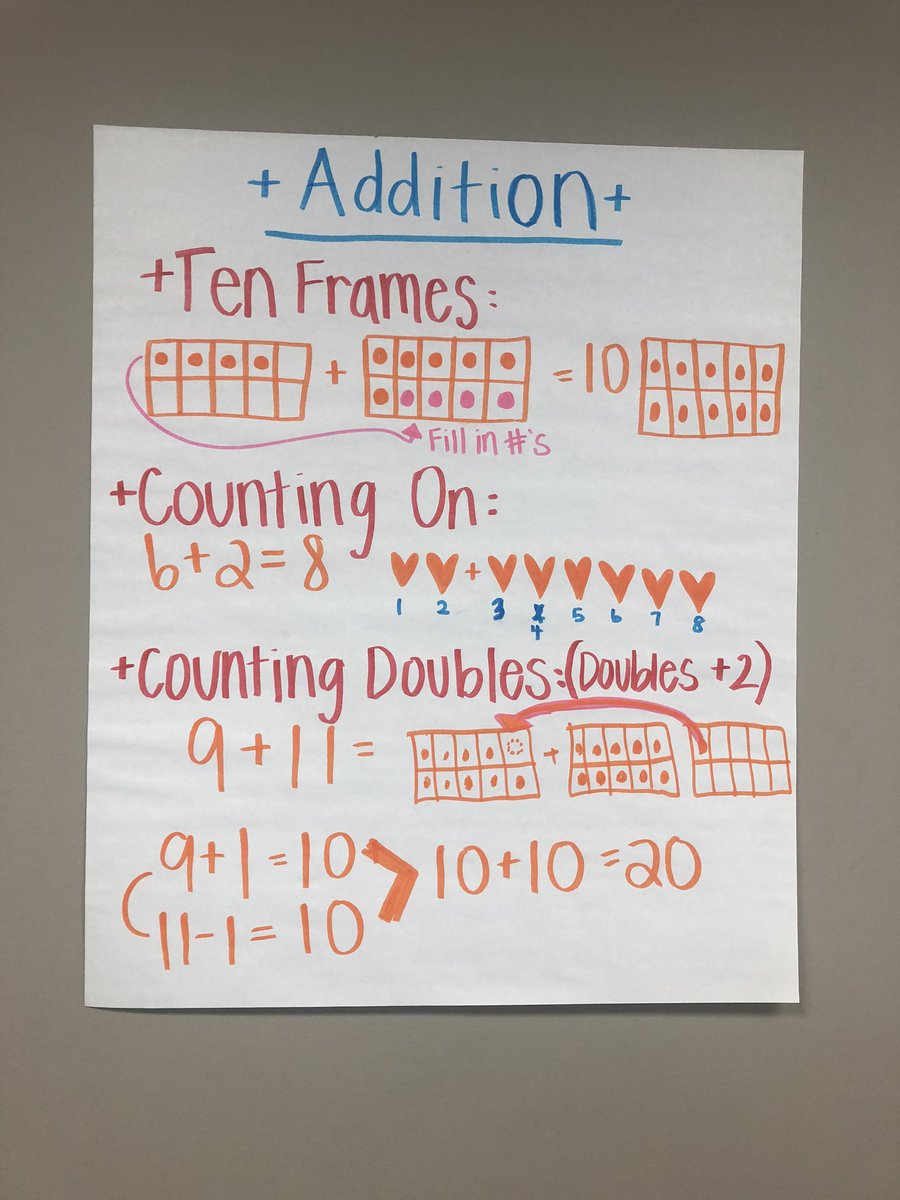 + Addition +
+Ten Frames:
+ = 10
Fill in #'s
+Counting On:
6+2=8 +
1 2 3 4 5 6 7 8
+Counting Doubles:(Doubles +2)
9+11= +
9+1=10
10+10=20
11-1=10